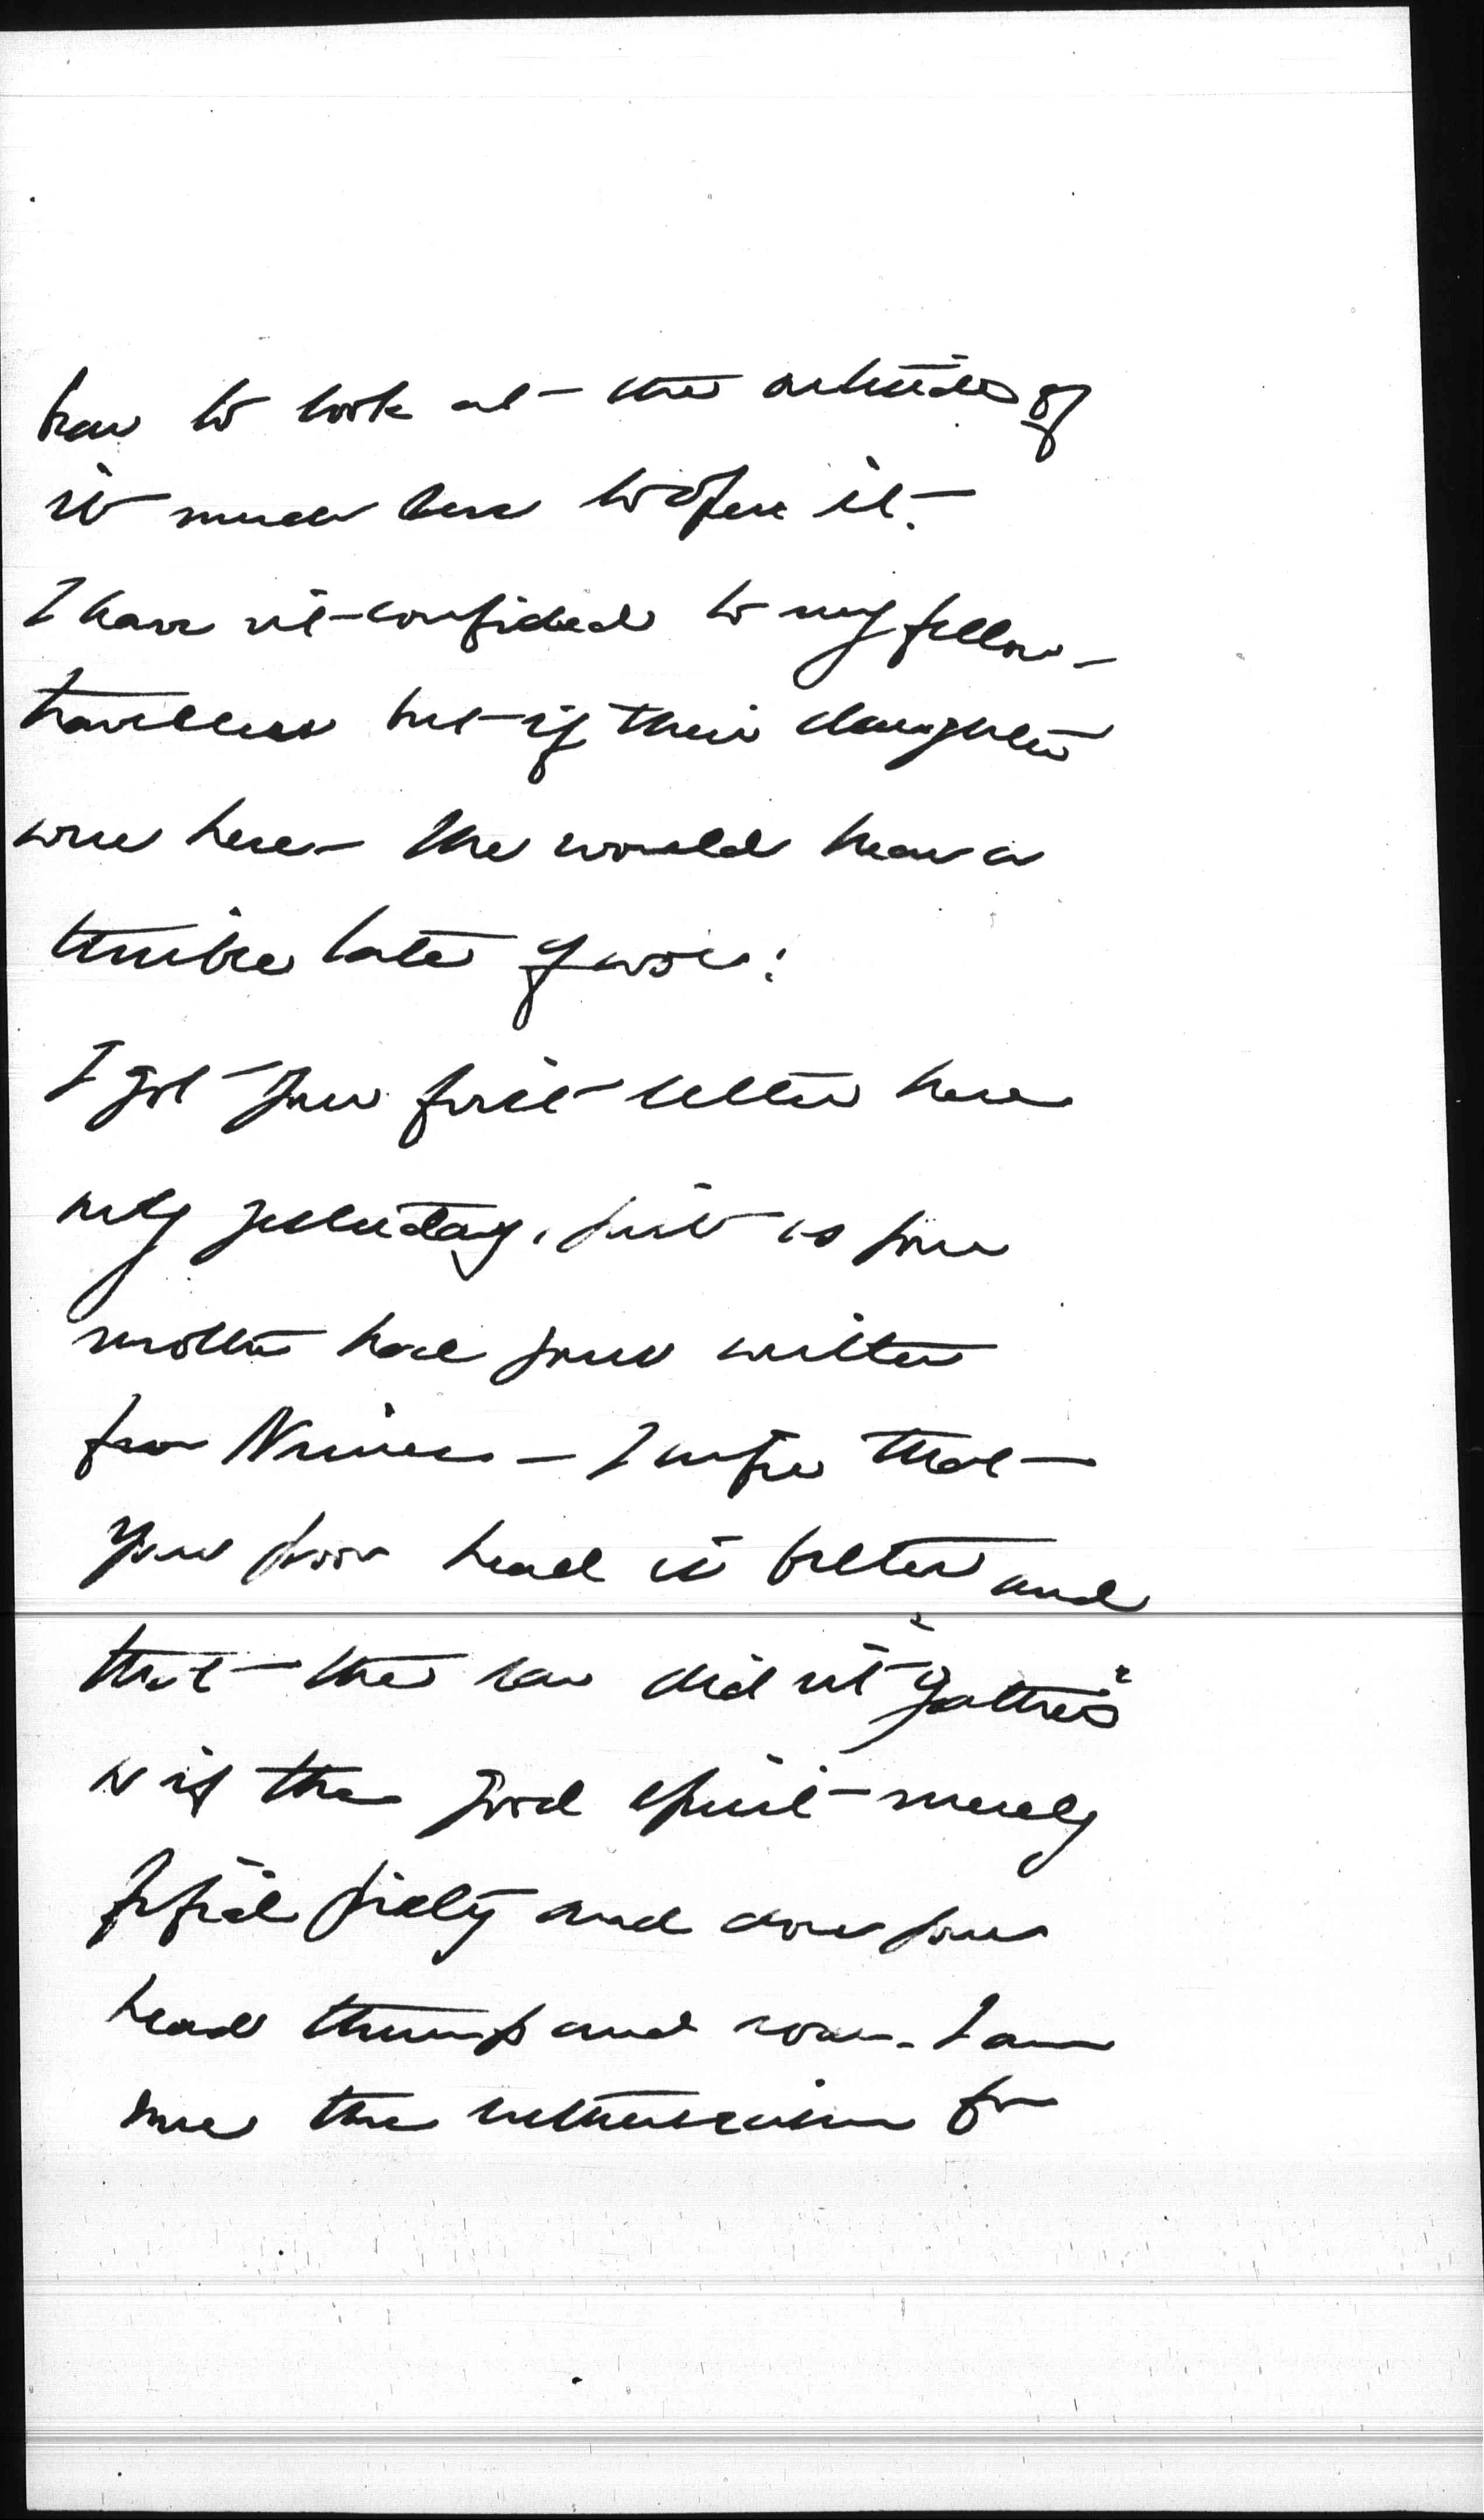 how to look at the outside of
it much less to open it.
I have not confided to my fellow-
travellers but if their daughter
were here she would hear a
terrible tale of woe:
I got your first letter here
only yesterday, just as your
mother had yours written
from Nimes — I infer that
your poor head is better and
that the row did not "gather"
as if the good spirit merely
filial piety and does your
head thump and roar. I am
sure the enthusiasm for